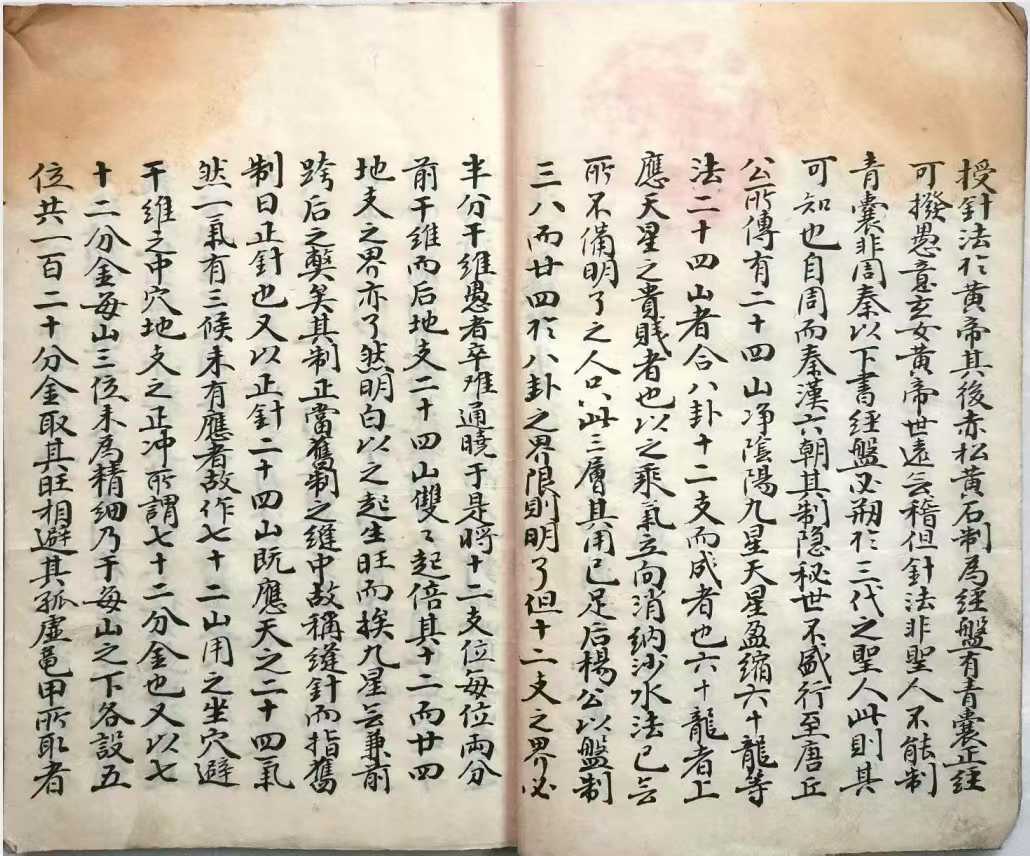 授針法扵黃帝其後赤松黃石制為經盤有青囊正經
可撥愚意玄女黃帝世遠云稽但針法非聖人不能制
青囊非周秦以下書經盤必朔扵三代之聖人此則其
可知也自周而秦漢六朝其制隐秘世不盛行至唐丘
公所傳有二十四山净陰陽九星天星盈縮六十龍等
法二十四山者合八卦十二支而成者也六十龍者上
應天星之貴賎者也以之乘氣立向消納沙水法已云
所不俻明了之人只此三層其用已足后楊公以盤制
三八而廿四扵八卦之界限則明了但十二支之界必
半分干維愚者卒难通曉于是將十二支位每位両分
前干維而后地支二十四山雙〻起倍其十二而廿四
地支之界亦了然明白以之起生旺而挨九星云兼前
跨后之獘矣其制正當舊制之縫中故稱縫針而指舊
制曰正針也又以正針二十四山既應天之二十四氣
然一氣有三候未有應者故作七十二山用之坐穴避
干維之中穴地支之正冲所謂七十二分金也又以七
十二分金每山三位未為精細乃于每山之下各設五
位共一百二十分金取其旺相避其孤虚龜甲所取者